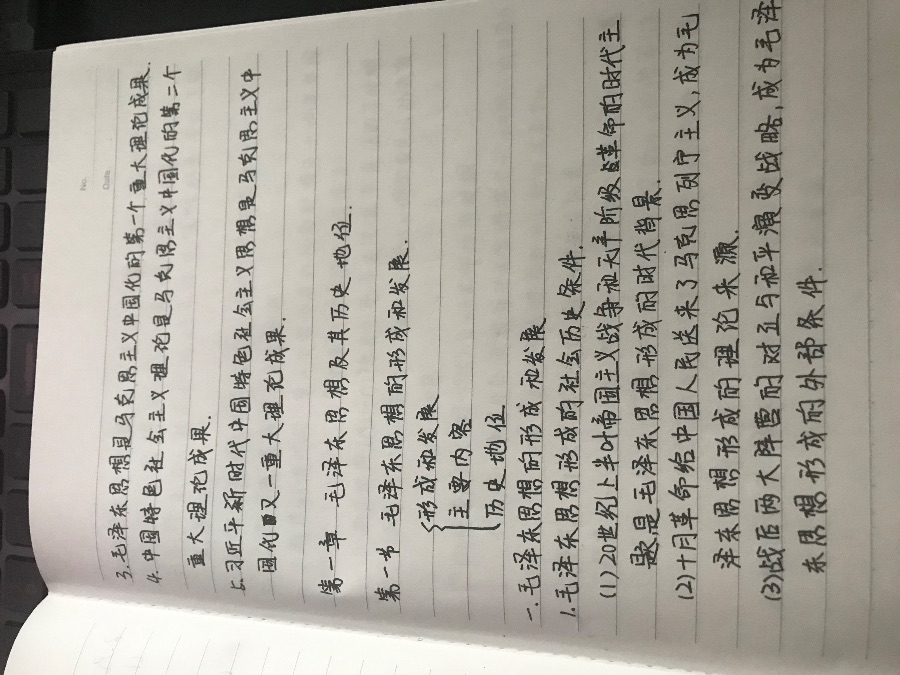 No.
Date.
3.毛泽东思想是马克思主义中国化的第一个重大理论成果.
4.中国特色社会主义理论是马克思主义中国化的第二个
重大理论成果.
5.习近平新时代中国特色社会主义思想是马克思主义中
国化又一重大理论成果.
第一章 毛泽东思想及其历史地位.
第一节 毛泽东思想的形成和发展.
形成和发展
主要内容
历史地位
一.毛泽东思想的形成和发展
1.毛泽东思想形成的社会历史条件.
(1)20世纪上半叶帝国主义战争和无产阶级革命的时代主
题是毛泽东思想形成的时代背景.
(2)十月革命给中国人民送来了马克思列宁主义,成为毛
泽东思想形成的理论来源.
(3)战后两大阵营的对立与和平演变战略,成为毛泽
东思想形成的外部条件.